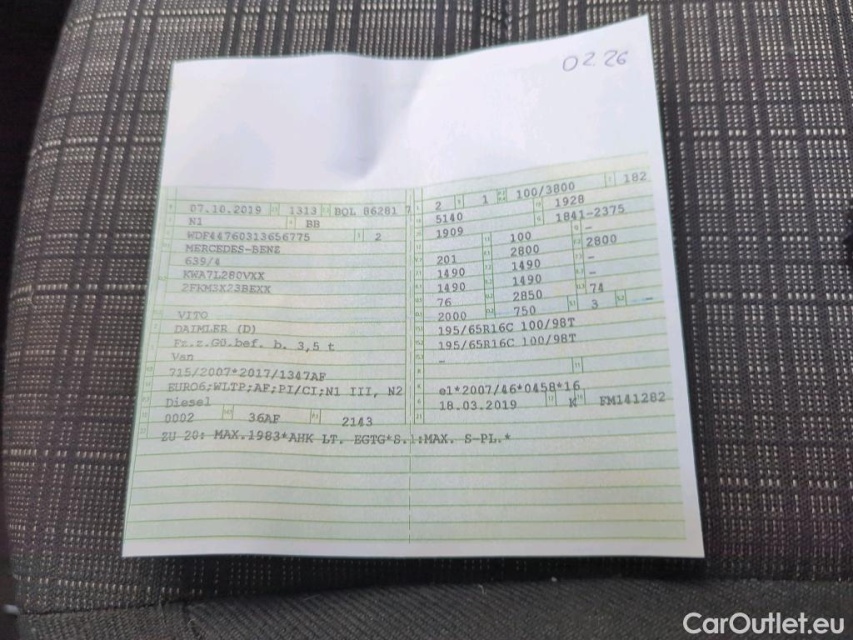 02.26
07.10.2019 1313 BQL 86281 7
N1 BB
WDF44760313656775 2
MERCEDES-BENZ
639/4
KWA7L280VXX
2FKM3X23BEXX
VITO
DAIMLER (D)
Fz.z.Gü.bef. b. 3,5 t
Van
715/2007*2017/1347AF
EURO6;WLTP;AF;PI/CI;N1 III, N2
Diesel
0002 36AF 2143
2 1 100/3800 182
5140 1928
1909 1841-2375
100 –
201 2800 2800
1490 1490 –
1490 1490 –
76 2850 74
2000 750 3 – –
195/65R16C 100/98T
195/65R16C 100/98T
–
e1*2007/46*0458*16
18.03.2019 K FM141282
ZU 20: MAX.1983*AHK LT. EGTG*S.1:MAX. S-PL.*
CarOutlet.eu